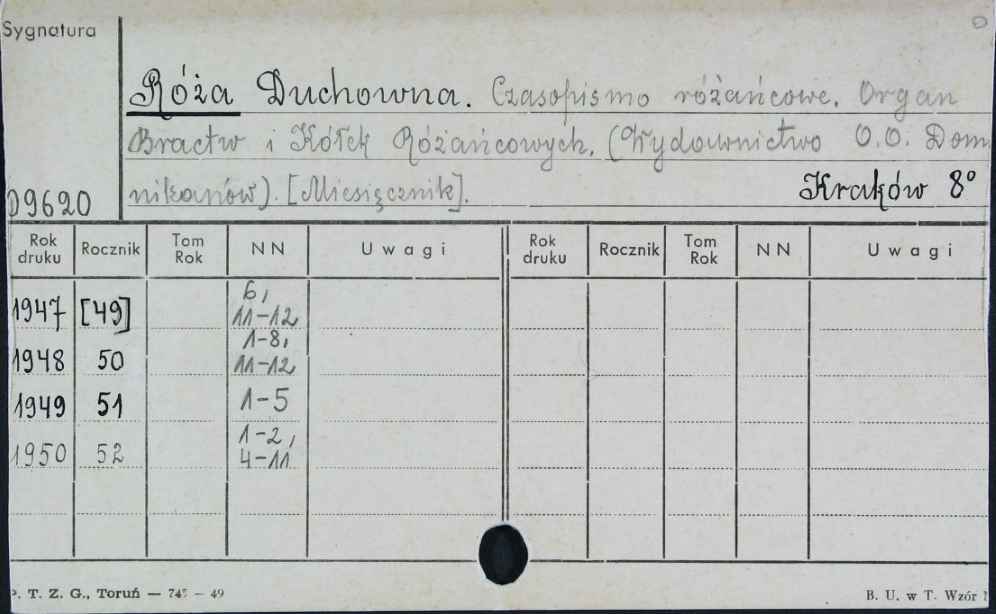 Sygnatura
Róża Duchowna. Czasopismo różańcowe. Organ
Bractw i Kółek Różańcowych. (Wydawnictwo O.O. Dom
nikanów). [Miesięcznik]. Kraków 8°
09620
Rok druku Rocznik Tom Rok NN Uwagi Rok druku Rocznik Tom Rok NN Uwagi
1947 [49] 6, 11-12
1948 50 1-8, 11-12
1949 51 1-5
1950 52 1-2, 4-11
P. T. Z. G., Toruń — 745 — 49 B. U. w T. Wzór